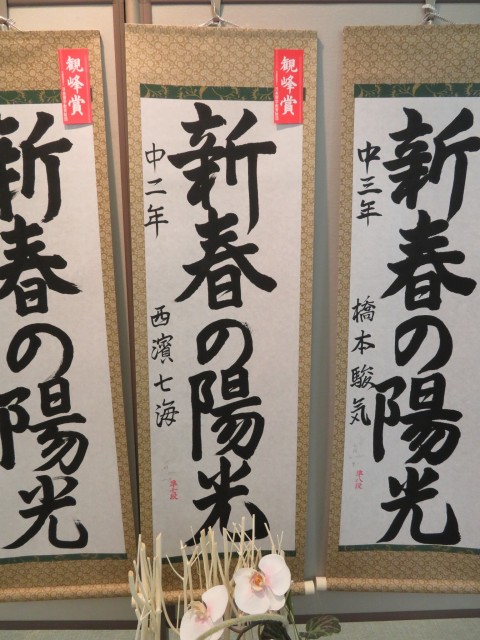 新春の陽光
中三年
橋本駿気
準八段
観峰賞
新春の陽光
中二年
西濱七海
準七段
観峰賞
新春の陽光